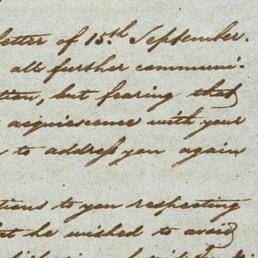 letter of 15th September.
all further communi-
tion, but fearing that
acquiescence with your
to address you again
tions to you respecting
he wished to avoid